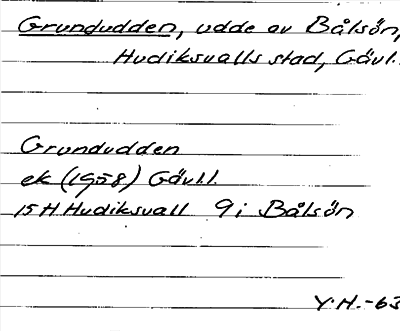 Grundudden, udde av Bålsön,
Hudiksvalls stad, Gävl.
Grundudden
ek (1958) Gävl.l.
15H Hudiksvall 9i Bålsön
Y.H.-63